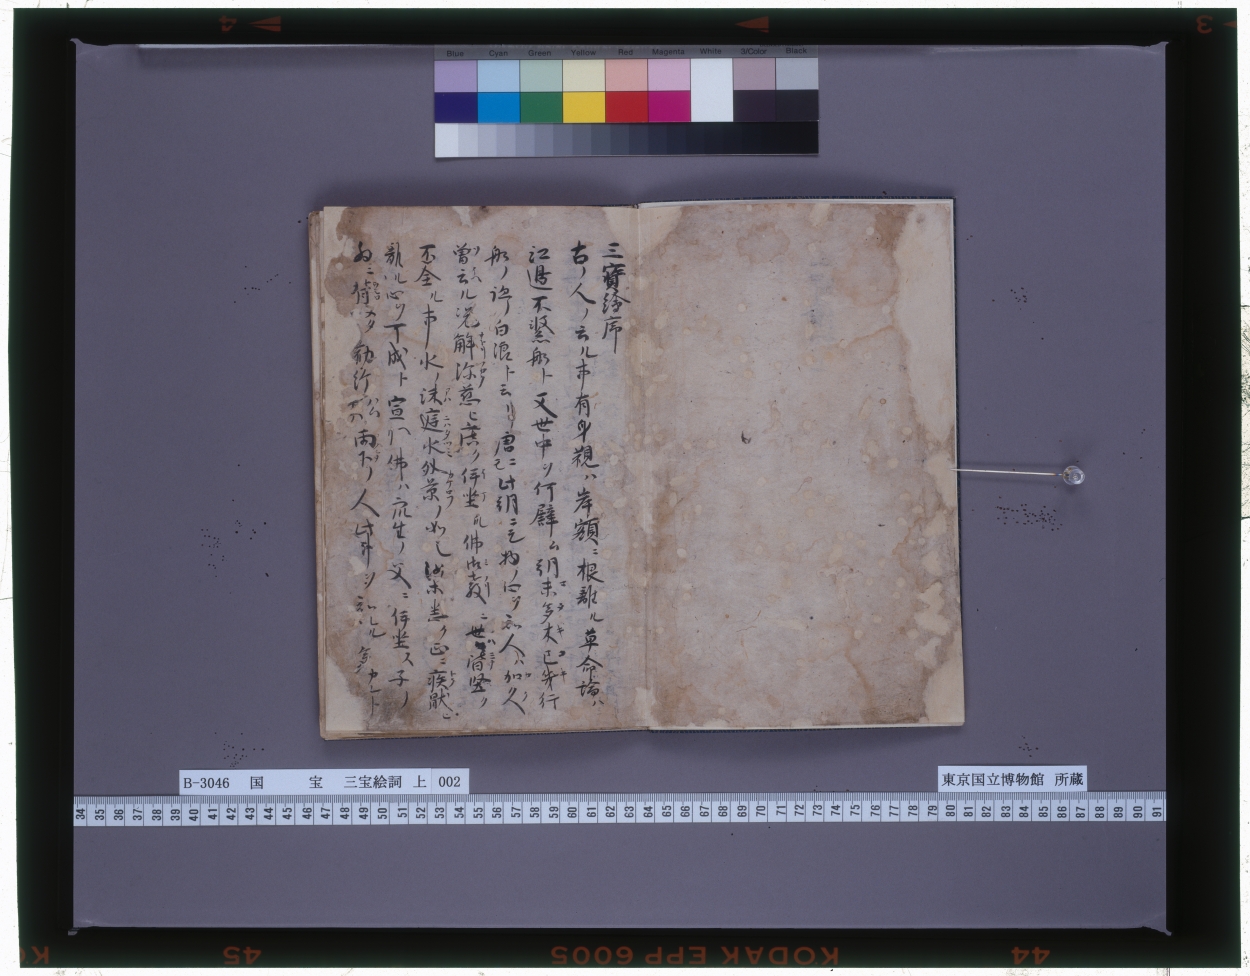 Blue Cyan Green Yellow Red Magenta White 3/Color Black
三寶絵序
古ノ人ノ云ル事有身観ハ岸額ニ根離ル草命論ハ
江邊不繋船ト又世中ヲ何譬ム朝未多木己歩行
船ノ跡ノ白浪ト云リ唐ニモ此朝ニモ物ノ心ヲ知人ハ加久
曾云ル况解深慈ヒ広ク伊坐ル佛御教ニ世皆堅ク
不全ル事水ノ沫庭水外景ノ如シ汝等悉ク正ニ疾厭ヒ
離ル心ヲ可成ト宣ヘリ佛ハ衆生ノ父ニ伊坐ス子ノ
為ニ
B-3046 国 宝 三宝絵詞 上 002
東京国立博物館 所蔵
34 35 36 37 38 39 40 41 42 43 44 45 46 47 48 49 50 51 52 53 54 55 56 57 58 59 60 61 62 63 64 65 66 67 68 69 70 71 72 73 74 75 76 77 78 79 80 81 82 83 84 85 86 87 88 89 90 91
45 KODAK EPP 6005 44